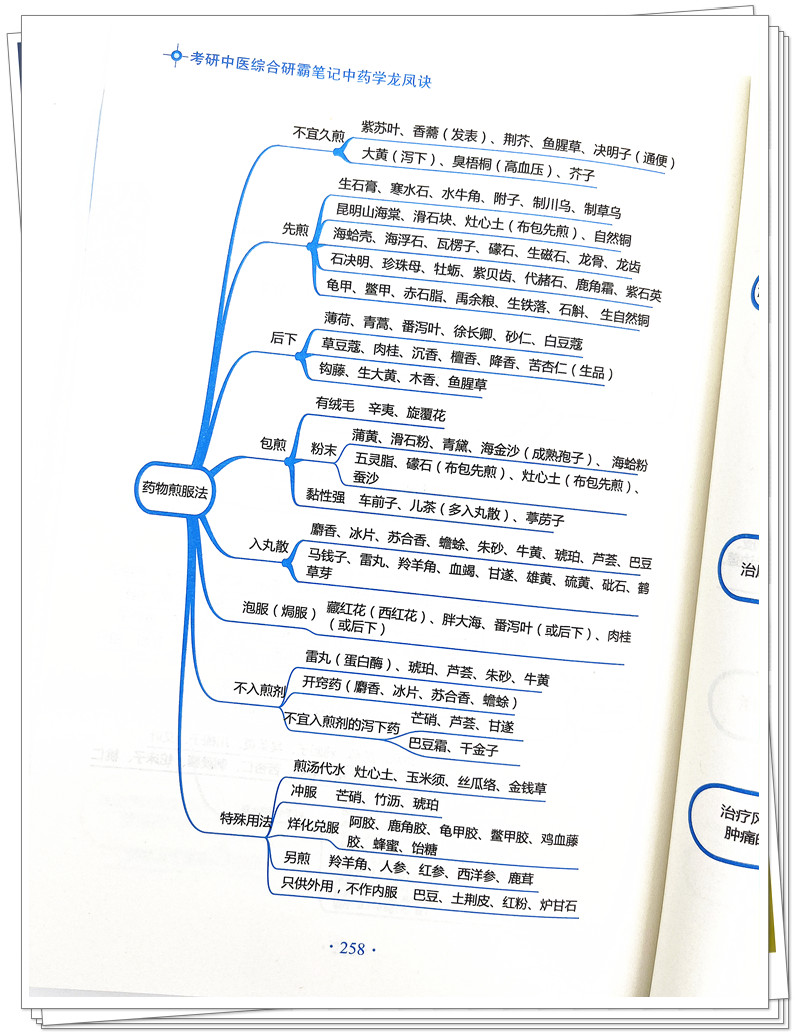 考研中医综合研霸笔记中药学龙凤诀
不宜久煎
紫苏叶、香薷（发表）、荆芥、鱼腥草、决明子（通便）
大黄（泻下）、臭梧桐（高血压）、芥子
先煎
生石膏、寒水石、水牛角、附子、制川乌、制草乌
昆明山海棠、滑石块、灶心土（布包先煎）、自然铜
海蛤壳、海浮石、瓦楞子、礞石、生磁石、龙骨、龙齿
石决明、珍珠母、牡蛎、紫贝齿、代赭石、鹿角霜、紫石英
龟甲、鳖甲、赤石脂、禹余粮、生铁落、石斛、生自然铜
后下
薄荷、青蒿、番泻叶、徐长卿、砂仁、白豆蔻
草豆蔻、肉桂、沉香、檀香、降香、苦杏仁（生品）
钩藤、生大黄、木香、鱼腥草
包煎
有绒毛 辛夷、旋覆花
粉末
蒲黄、滑石粉、青黛、海金沙（成熟孢子）、海蛤粉
五灵脂、礞石（布包先煎）、灶心土（布包先煎）、
蚕沙
黏性强 车前子、儿茶（多入丸散）、葶苈子
药物煎服法
入丸散
麝香、冰片、苏合香、蟾蜍、朱砂、牛黄、琥珀、芦荟、巴豆
马钱子、雷丸、羚羊角、血竭、甘遂、雄黄、硫黄、砒石、鹤
草芽
泡服（焗服）
藏红花（西红花）、胖大海、番泻叶（或后下）、肉桂
（或后下）
不入煎剂
雷丸（蛋白酶）、琥珀、芦荟、朱砂、牛黄
开窍药（麝香、冰片、苏合香、蟾蜍）
不宜入煎剂的泻下药
芒硝、芦荟、甘遂
巴豆霜、千金子
特殊用法
煎汤代水 灶心土、玉米须、丝瓜络、金钱草
冲服 芒硝、竹沥、琥珀
烊化兑服
阿胶、鹿角胶、龟甲胶、鳖甲胶、鸡血藤
胶、蜂蜜、饴糖
另煎 羚羊角、人参、红参、西洋参、鹿茸
只供外用，不作内服 巴豆、土荆皮、红粉、炉甘石
·258·
治疗
肿痛